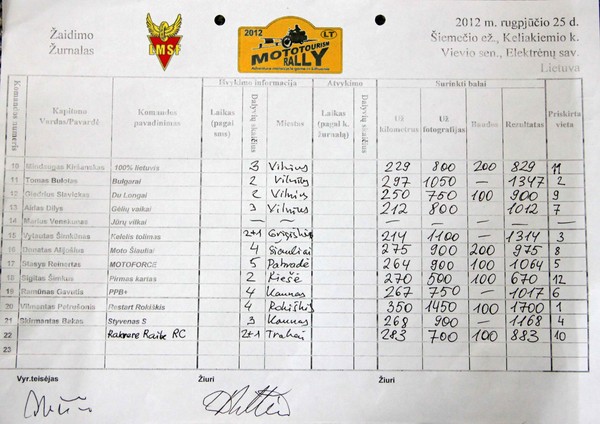 Žaidimo
Žurnalas
LMSF
2012
LT
MOTOTOURISM
RALLY
2012 m. rugpjūčio 25 d.
Šiemečio ež., Keliakiemio k.
Vievio sen., Elektrėnų sav.
Lietuva
Išvykimo informacija Atvykimo Surinkti balai
Komandos numeris Kapitono Vardas/Pavardė Komandos pavadinimas Laikas (pagal sms) Dalyvių skaičius Miestas Laikas (pagal k. žurnalą) Dalyvių skaičius Už kilometrus Už fotografijas Baudos Rezultatas Priskirta vieta
10 100% lietuvis 3 Vilnius 229 800 200 829 11
11 Tomas Bulotas Bulgarai 2 Vilnius 297 1050 — 1347 2
12 Du Longai 2 Vilnius 250 750 100 900 9
13 Airias Dilys Gėlių vaikai 3 Vilnius 212 800 1012 7
14 Jūrų vilkai — — — — — —
15 Vytautas Šimkūnas Kelelis tolimas 2+1 Grigiškės 214 1100 — 1314 3
16 Donatas Alijošius Moto Šiauliai 4 Šiauliai 275 900 200 975 8
17 Stasys Reinertas MOTOFORCE 5 Pabradė 264 900 100 1064 5
18 Sigitas Šimkus Pirmas kartas 2 Riešė 270 500 100 670 12
19 Ramūnas Gavutis PPB+ 4 Kaunas 267 750 — 1017 6
20 Vilmantas Petrušonis Restart Rokiškis 4 Rokiškis 350 1450 100 1700 1
21 Skirmantas Bakas Styvenas S 3 Kaunas 268 900 — 1168 4
22 Raike RC 2+1 Trakai 283 700 100 883 10
23
Vyr.teisėjas Žiuri Žiuri